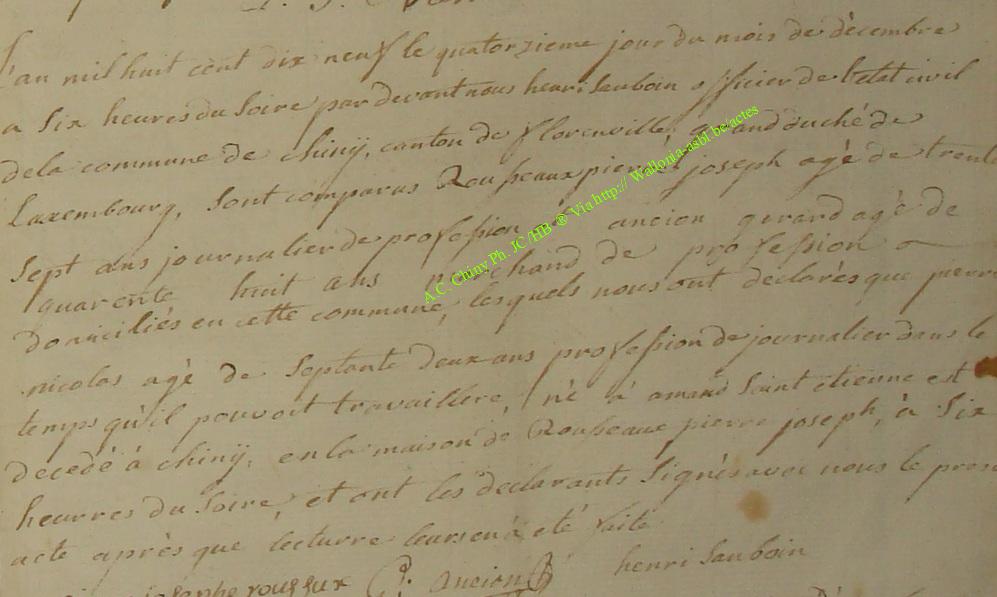 L'an mil huit cent dix neuf le quatorzieme jour du mois de décembre
a Six heures du Soire par devant nous henri Sauboin officier de l'etat civil
dela commune de chinÿ, canton de florenville, grand duché de
Luxembourg, Sont comparus Rousseaux pierre joseph agé de trente
Sept ans journalier de profession et ancion gerard agè de
quarente huit ans marchand de profession
domiciliés en cette commune, lesquels nous ont declarès que pierre
nicolas agè de Septante deux ans profession de journalier dans le
temps qu'il pouvoit travaillere, né à amand Saint etienne est
decedé à chinÿ, en la maison de Rousseaux pierre joseph, à Six
heurres du Soire, et ont les declarants Signés avec nous le prese
acte après que lecturre leur en à eté faite
josephe roussux G: ancion henri Sauboin
A.C. Chiny Ph. JC /HB ® Via http:// Wallonia-asbl.be/actes